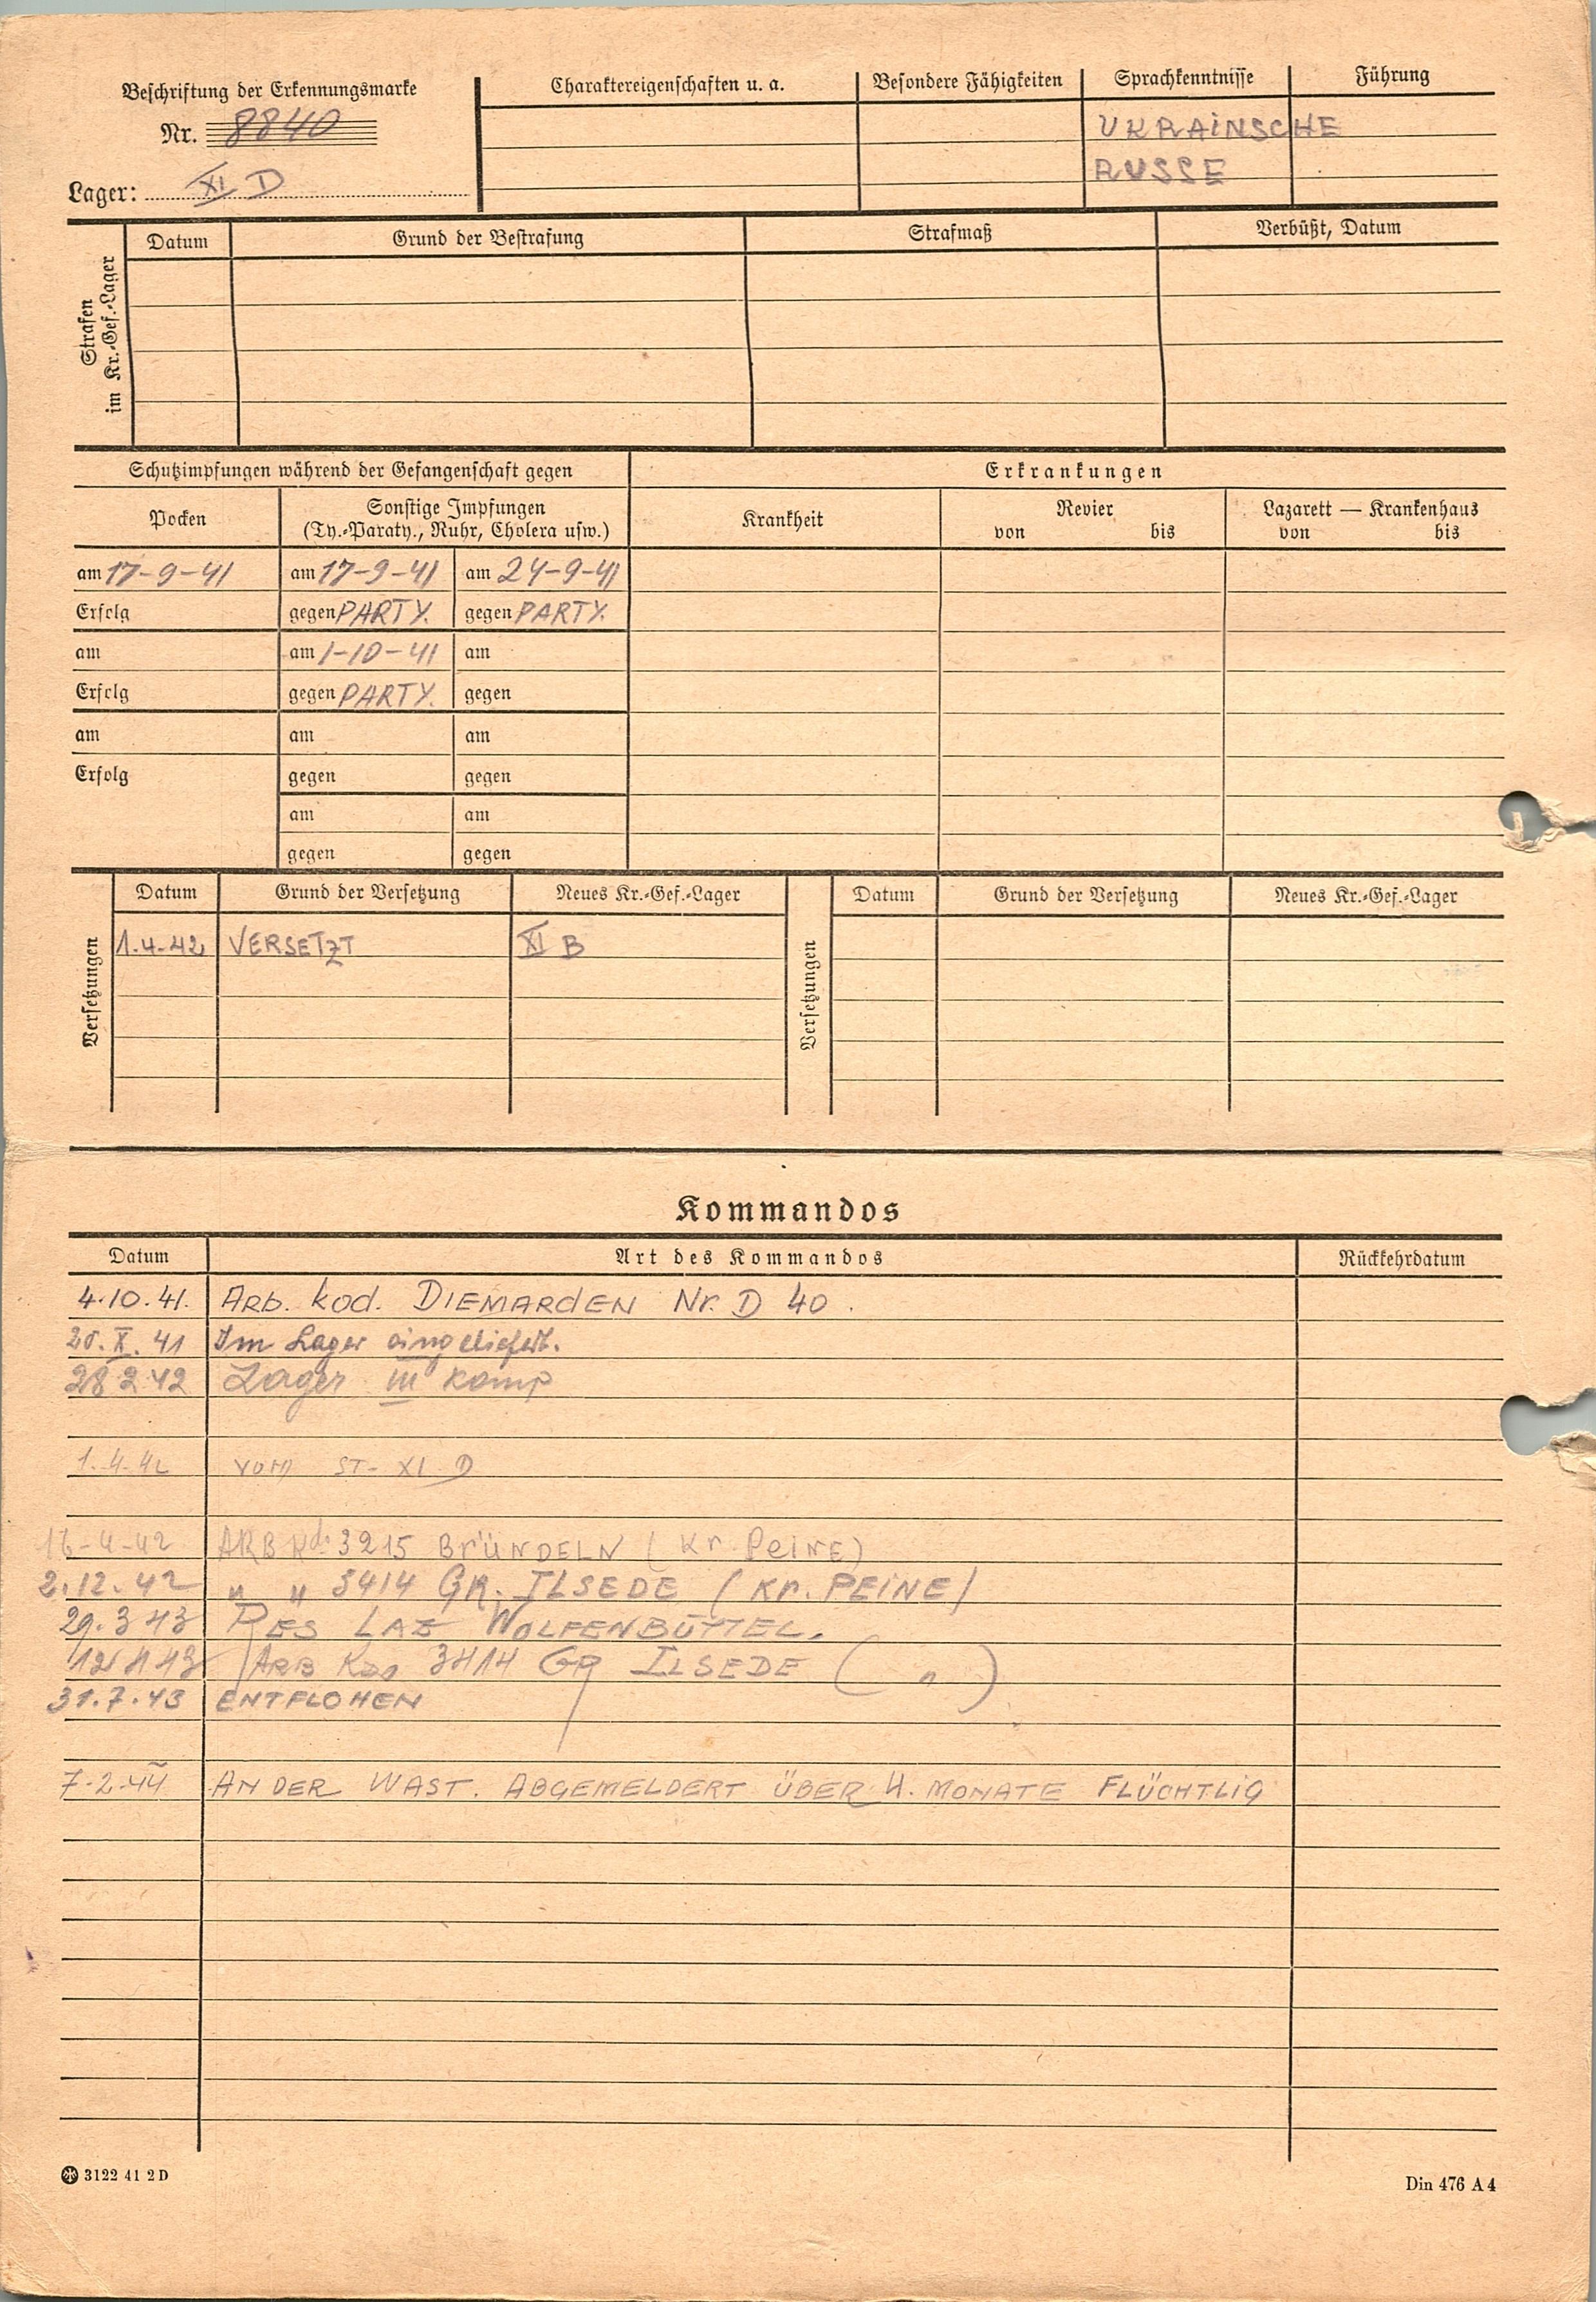 Beschriftung der Erkennungsmarke
Nr. 8840
Lager: XI D
Charaktereigenschaften u. a. Besondere Fähigkeiten Sprachkenntnisse Führung
UKRAINSCHE
RUSSE
Strafen
im Kr.-Gef.-Lager
Datum Grund der Bestrafung Strafmaß Verbüßt, Datum
Schutzimpfungen während der Gefangenschaft gegen Erkrankungen
Pocken Sonstige Impfungen
(Ty.-Paraty., Ruhr, Cholera usw.)
Krankheit Revier
von bis
Lazarett — Krankenhaus
von bis
am 17-9-41 am 17-9-41 am 24-9-41
Erfolg gegen PARTY. gegen PARTY.
am am 1-10-41 am
Erfolg gegen PARTY. gegen
am am am
Erfolg gegen gegen
am am
gegen gegen
Versetzungen
Datum Grund der Versetzung Neues Kr.-Gef.-Lager
1.4-42 VERSETZT XI B
Versetzungen
Datum Grund der Versetzung Neues Kr.-Gef.-Lager
Kommandos
Datum Art des Kommandos Rückkehrdatum
4.10.41. ARb. kod. DIEMARdEN Nr. D 40.
X. 41 Im Lager eingeliefert.
28 2 42 Lager III komp
1.4.42 VOM ST- XI D
16-4-42 ARB Kd: 3215 BrÜNDELN (Kr PeiNE)
2.12.42 " " 3414 GR. ILSEDE (Kr. PEINE)
29.3 43 RES LAZ WOLFENBÜTTEL.
ARB Kdo 3414 GR ILSEDE ( " )
31.7.43 ENTFLOHEN
7-2-44 AN DER WAST. ABGEMELDERT ÜBER 4. MONATE FLÜCHTLIG
3122 41 2 D
Din 476 A 4